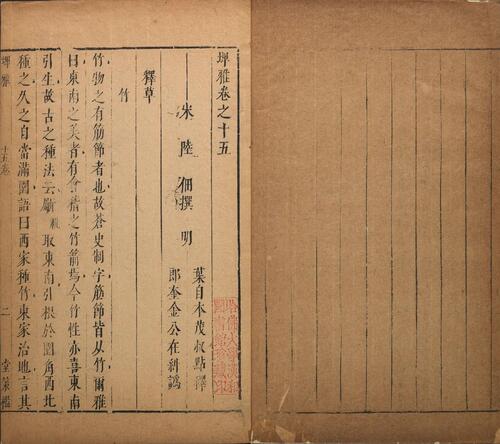 埤雅卷之十五
宋 陸 佃撰 明
葉自本茂叔點釋
郎奎金公在糾譌
釋草
竹
竹物之有筋節者也故蒼史制字筋節皆从竹爾雅
曰東南之美者有會稽之竹箭焉今竹性亦喜東南
引生故古之種法云斸取東南引根於園角西北
種之久之自當滿園語曰西家種竹東家治地言其
埤雅 十五卷 堂策檻